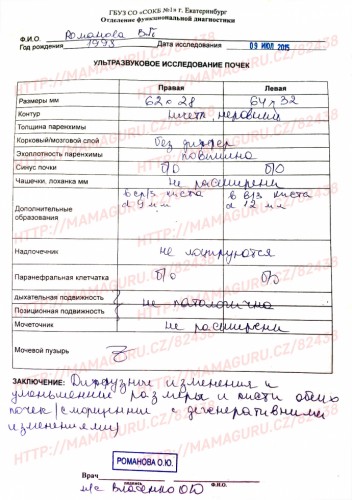 ГБУЗ СО «СОКБ №1» г. Екатеринбург
Отделение функциональной диагностики
Ф.И.О. Романова
Год рождения 1993 Дата исследования 09 ИЮЛ 2015
УЛЬТРАЗВУКОВОЕ ИССЛЕДОВАНИЕ ПОЧЕК
Правая Левая
Размеры мм 62 х 28 64 х 32
Контур нечетк. неровный
Толщина паренхимы
Корковый/мозговой слой без диффер
Эхоплотность паренхимы повышена
Синус почки б/о б/о
Чашечки, лоханка мм не расширены
Дополнительные образования в ср/з киста d 9 мм в в/з киста d 12 мм
Надпочечник не лоцируются
Паранефральная клетчатка б/о б/о
дыхательная подвижность не патологична
Позиционная подвижность
Мочеточник не расширены
Мочевой пузырь
ЗАКЛЮЧЕНИЕ: Диффузные изменения и
уменьшение размеры и кисти обеих
почек (сморщенны с дегенеративными
изменениями)
РОМАНОВА О.Ю.
Врач
подпись Ф.И.О.
м/с Власенко
HTTP://MAMAGURU.CZ/82438